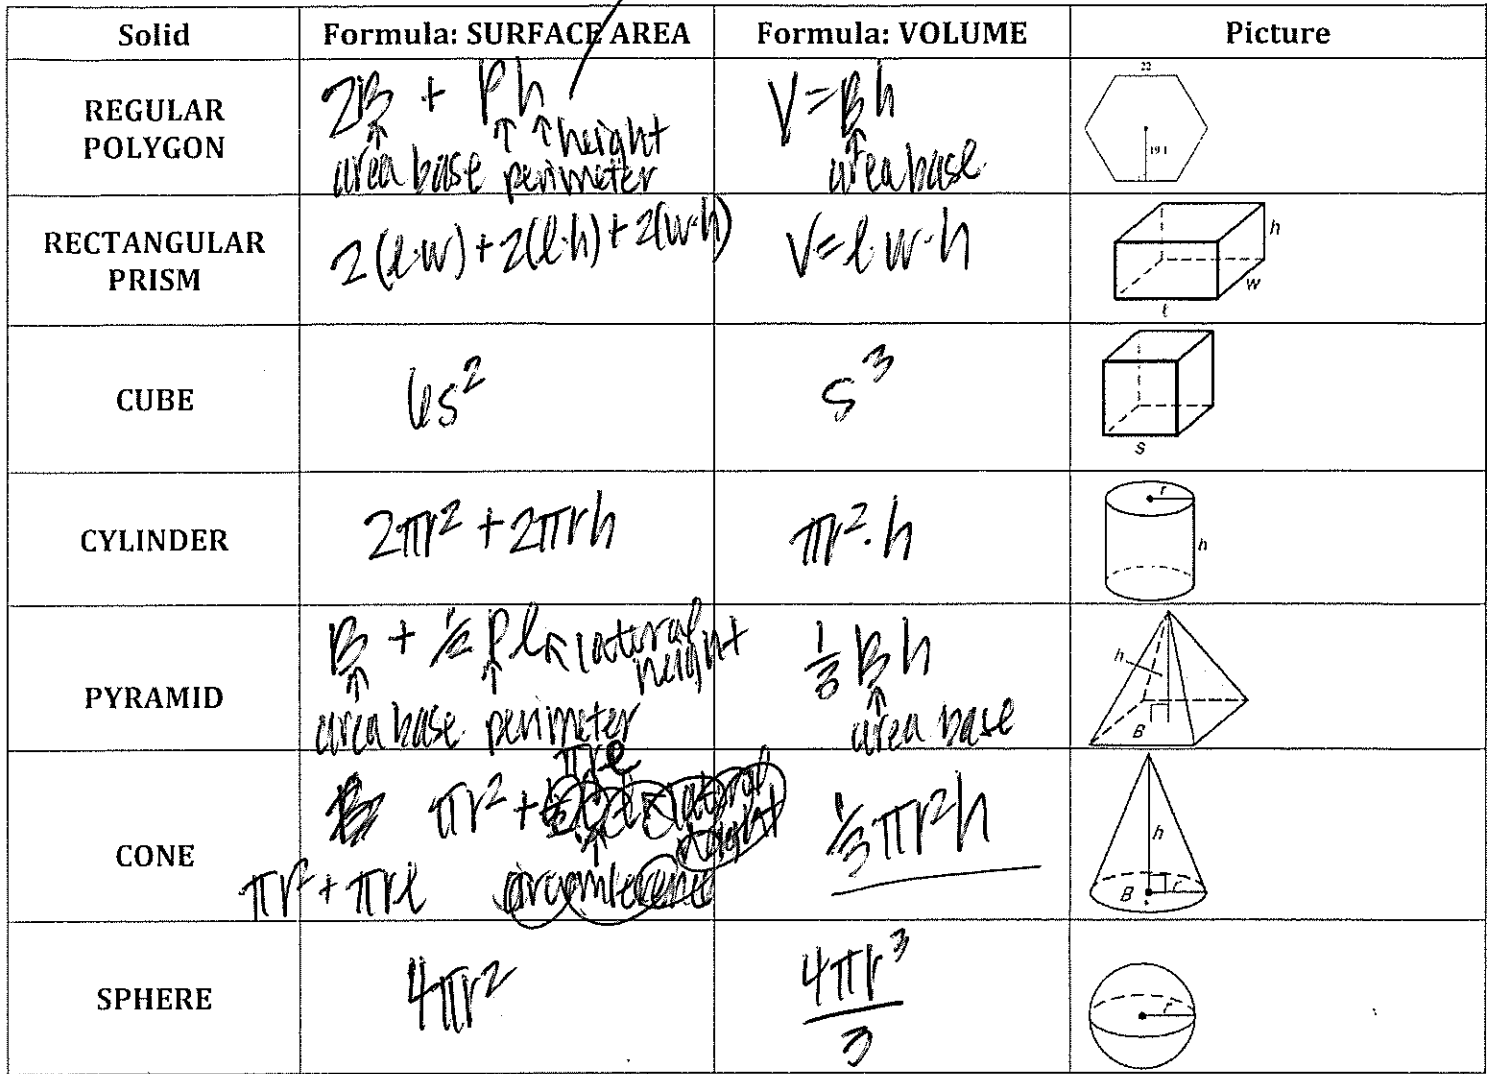 Solid Formula: SURFACE AREA Formula: VOLUME Picture
REGULAR POLYGON
2B + Ph
area base perimeter height
V=Bh
area base
22
19.1
RECTANGULAR PRISM
2(l·w)+2(l·h)+2(w·h)
V=l·w·h
h
w
ℓ
CUBE
6s²
s³
s
CYLINDER
2πr²+2πrh
πr²·h
r
h
PYRAMID
B + ½ Pl lateral height
area base perimeter
1/3 Bh
area base
h
B
CONE
πrl
πr²+
πr²+πrl
circumference
lateral height
⅓πr²h
h
B
r
SPHERE
4πr²
4πr³
3
r